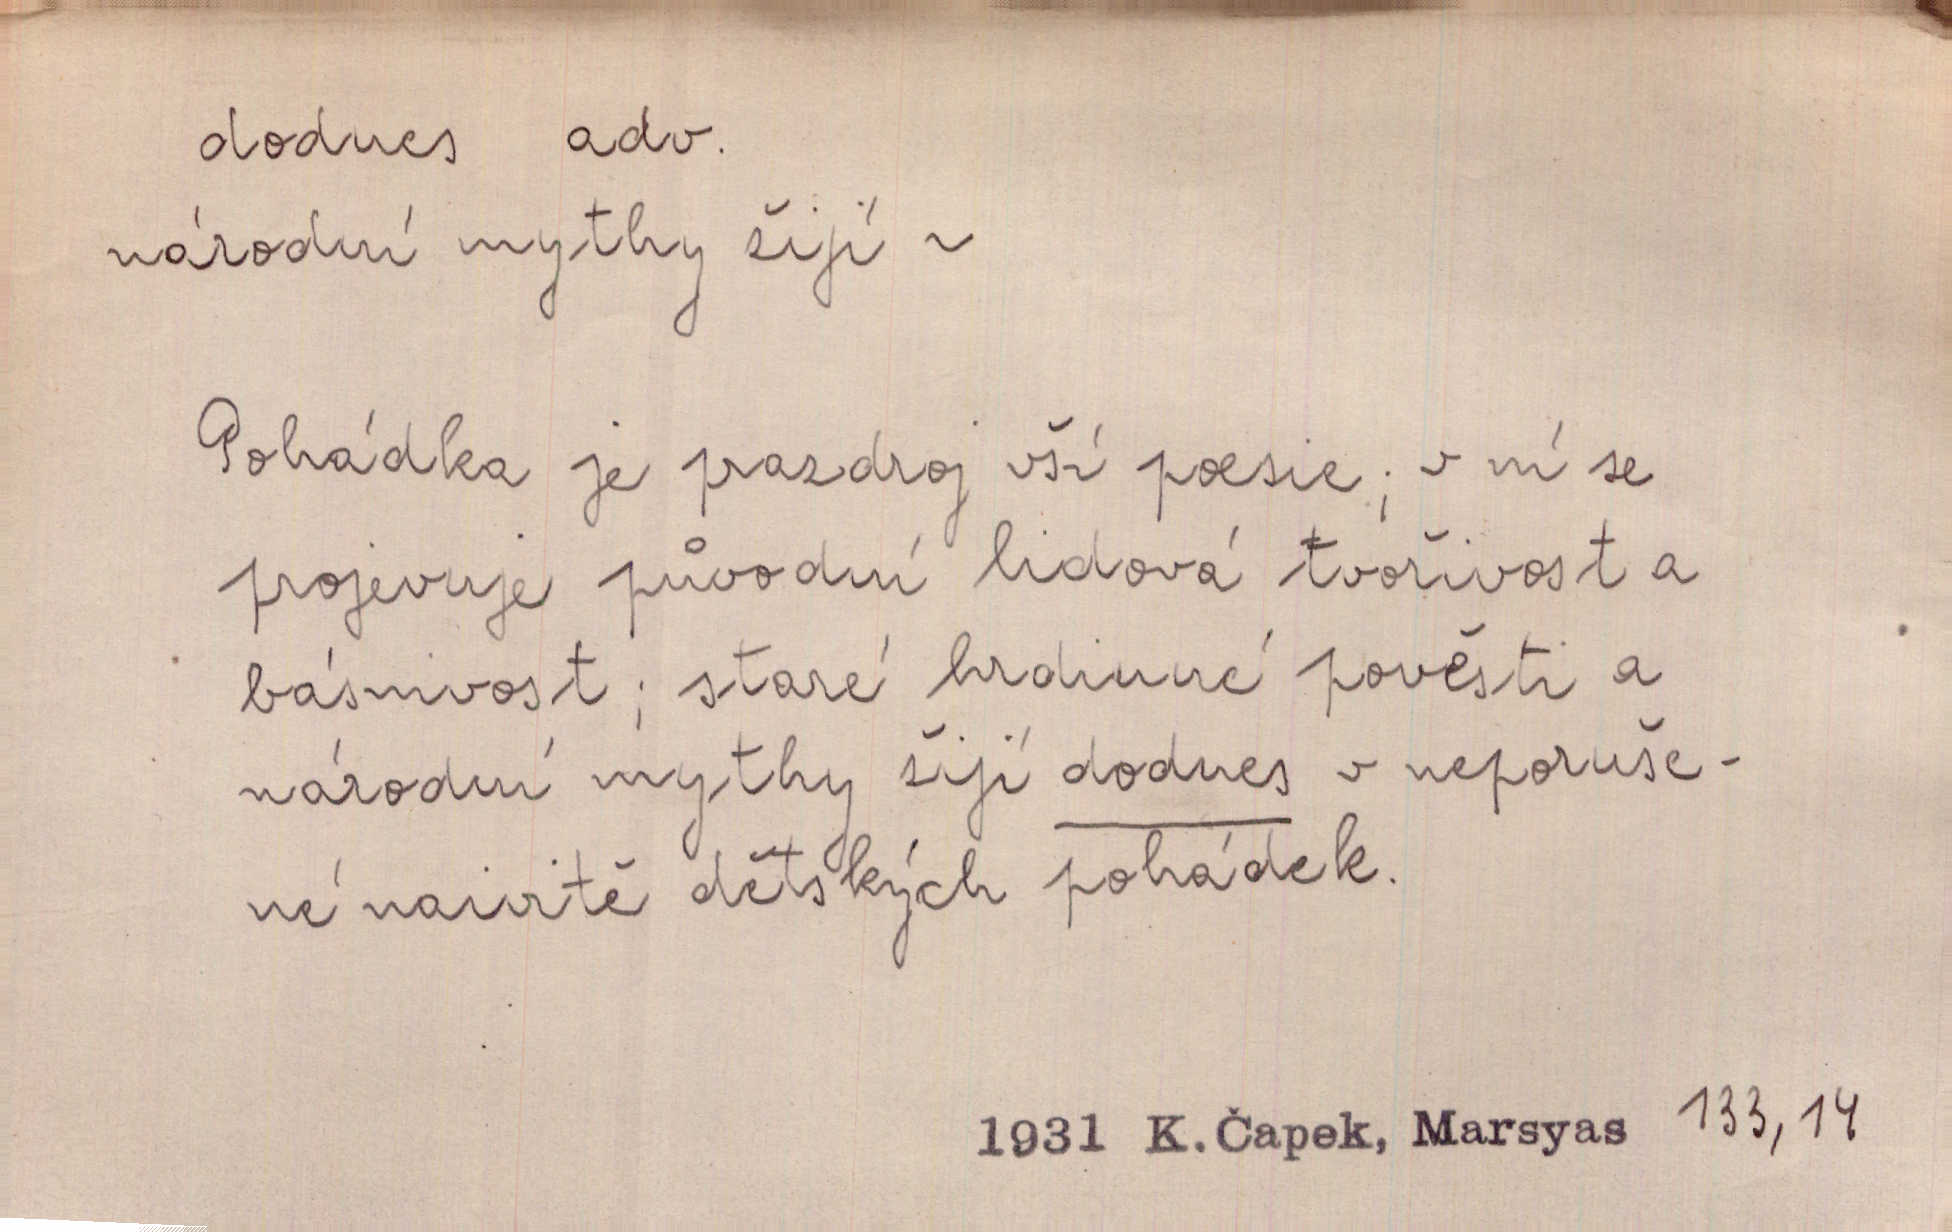 dodnes adv.
národní mythy žijí ~
Pohádka je prazdroj vší poesie; v ní se
projevuje původní lidová tvořivost a
básnivost; staré hrdinné pověsti a
národní mythy žijí dodnes v neporuše-
né naivitě dětských pohádek.
1931 K. Čapek, Marsyas 133, 14